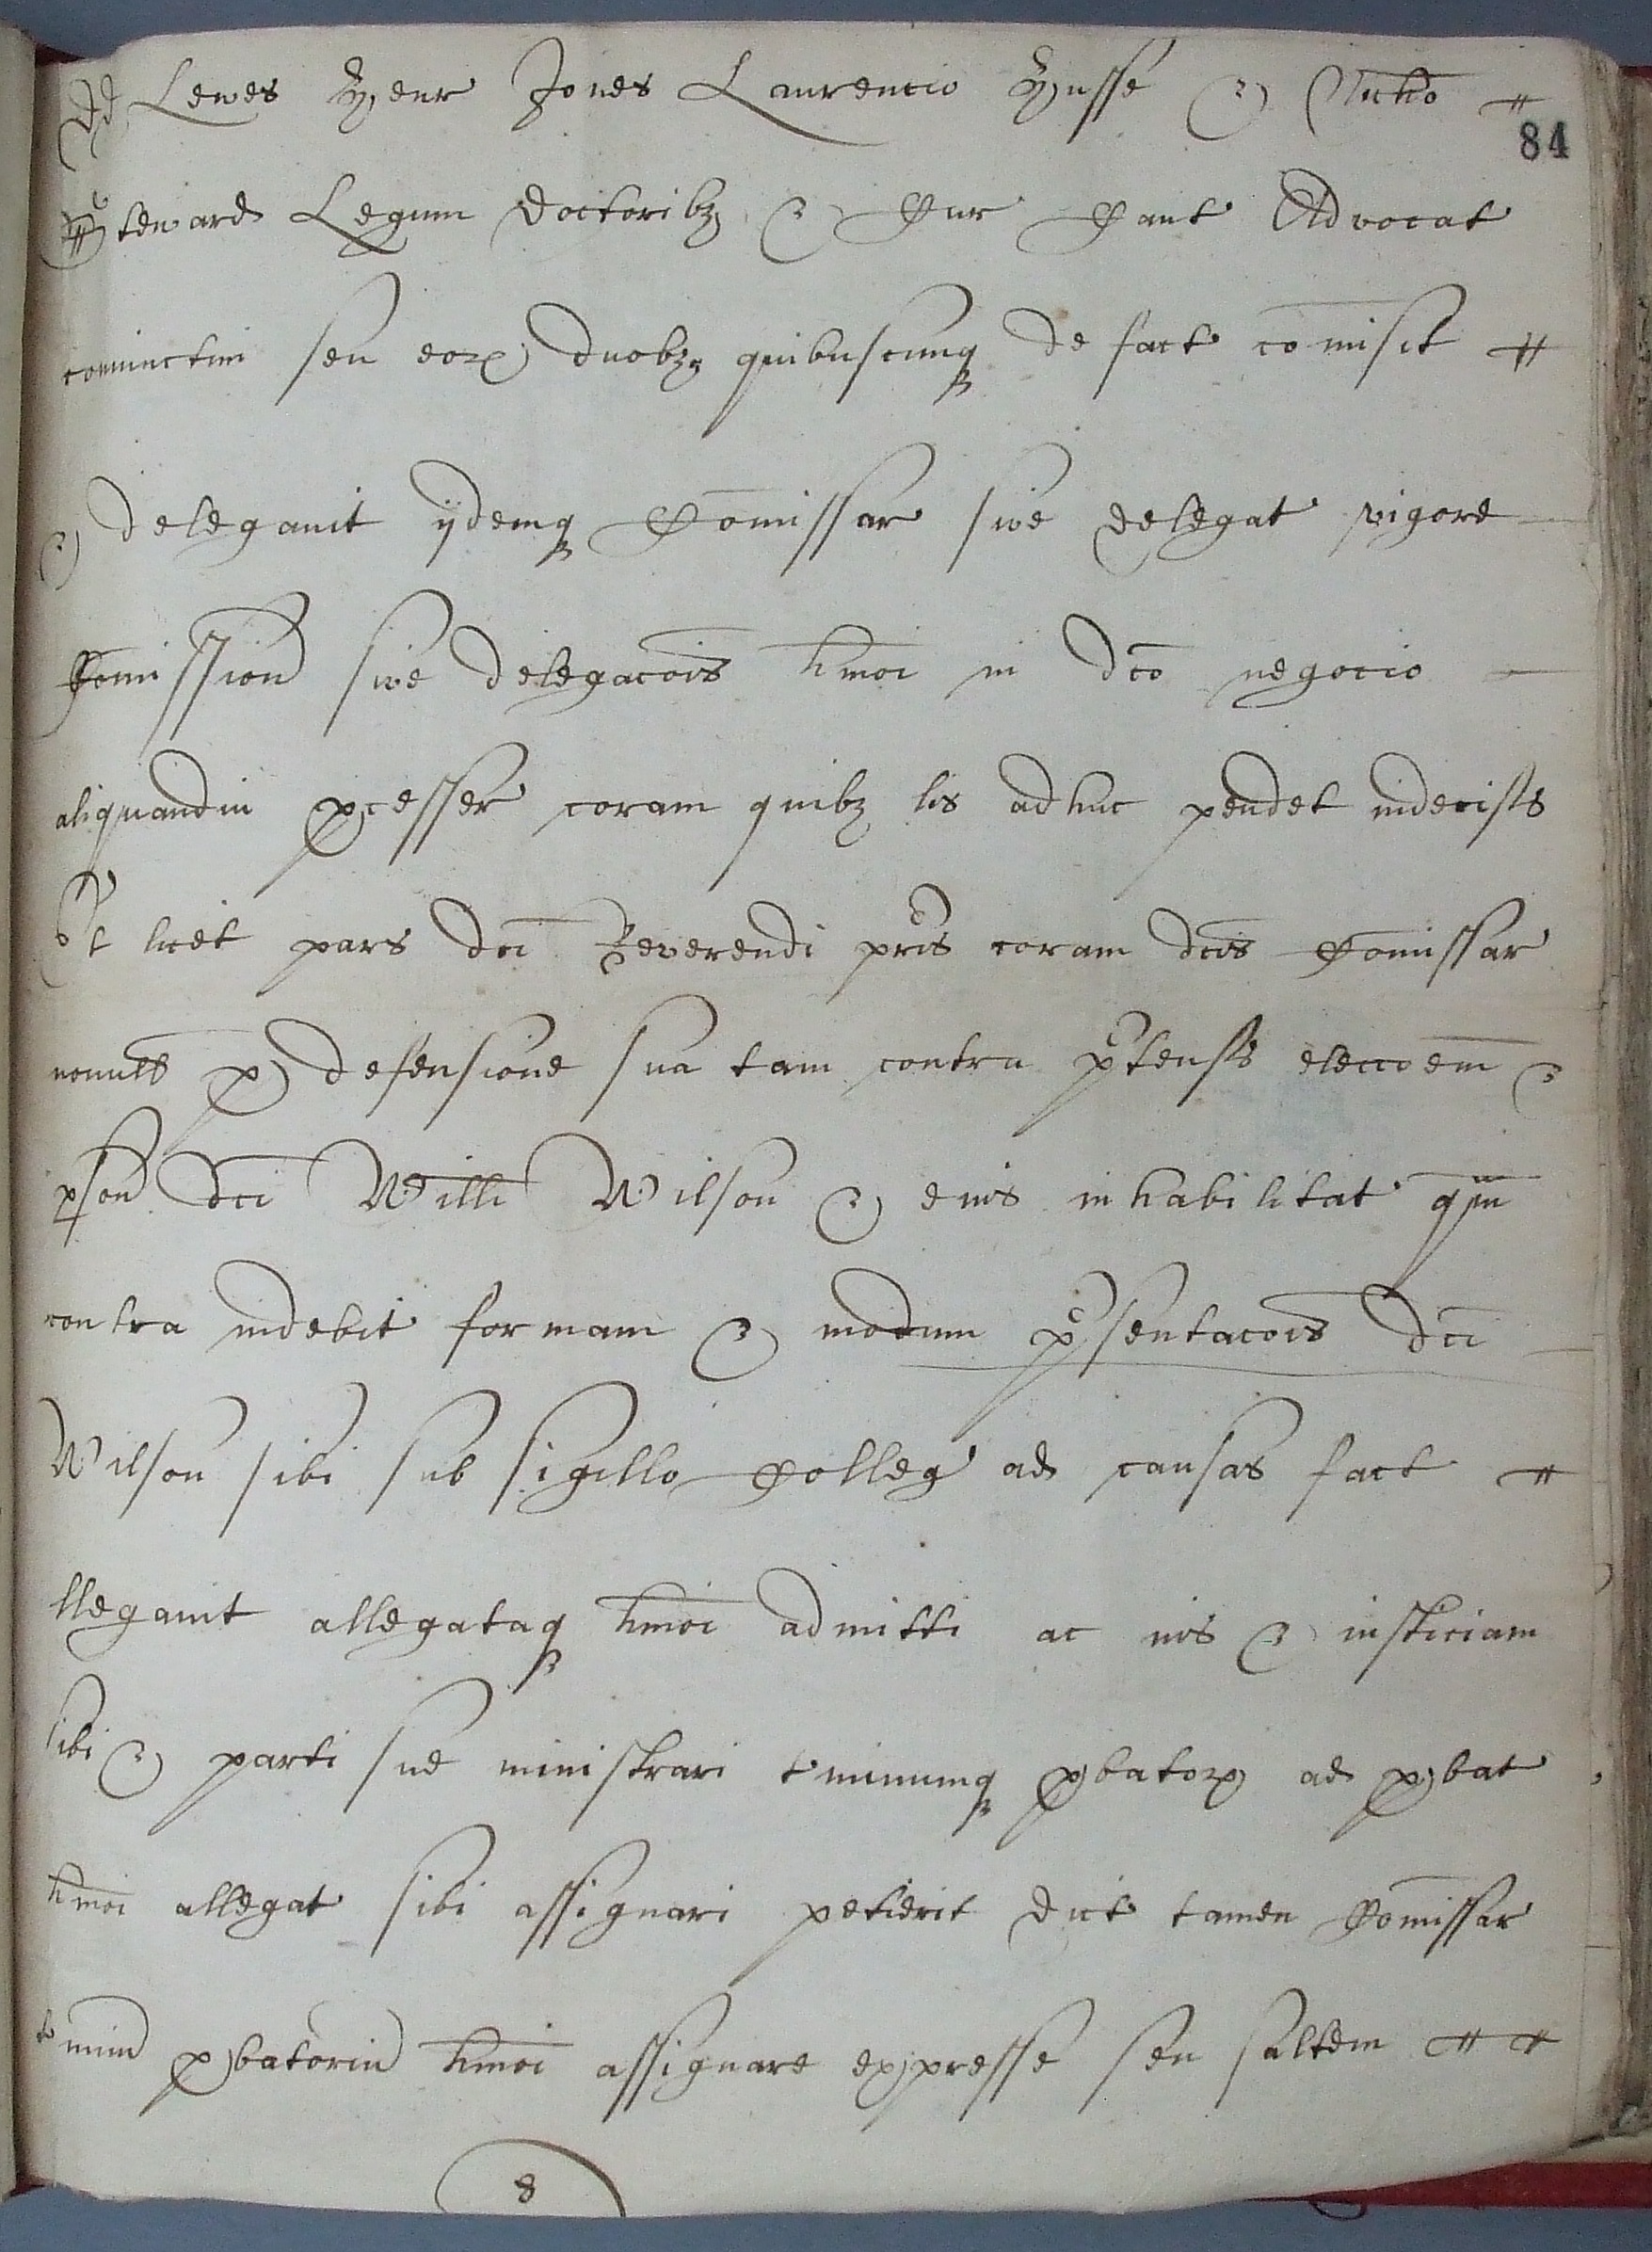 Lewes Henr Jones Laurencio Husse & Nicho
84
Steward Legum doctoribz & Cur Cant Advocat
coniunctim seu eor duobz quibuscunq de fact comisit
& delegauit ijdemq Comissar sive delegat vigore
Comission sive delegacois hmoi in dco negocio
aliquandiu pcesser coram quibz lis adhuc pendet indecis
Et licet pars dci Reverendi pris coram dcis Comissar
nonull p defensione sua tam contra ptens eleccoem &
pson dci Willi Wilson & eius inhabilitat qm
contra indebit formam & modum psentacois dci
Wilson sibi sub sigillo Colleg ad causas fact
llegauit allegataq hmoi admitti ac ius & iusticiam
sibi & parti sue ministrari tminumq pbator ad pbat
hmoi allegat sibi assignari petierit dict tamen Comissar
tminu pbatoriu hmoi assignare expresse seu saltem
8